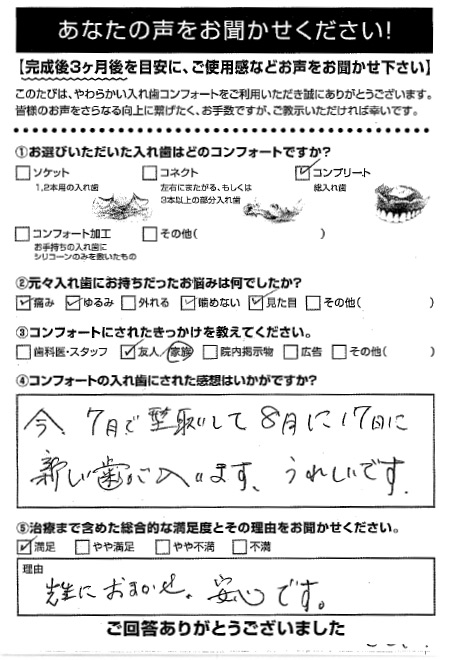 あなたの声をお聞かせください!
【完成後3ヶ月後を目安に、ご使用感などお声をお聞かせ下さい】
このたびは、やわらかい入れ歯コンフォートをご利用いただき誠にありがとうございます。
皆様のお声をさらなる向上に繋げたく、お手数ですが、ご教示いただければ幸いです。
①お選びいただいた入れ歯はどのコンフォートですか?
□ソケット □コネクト ☑コンプリート
1,2本用の入れ歯 左右にまたがる、もしくは 総入れ歯
3本以上の部分入れ歯
□コンフォート加工 □その他( )
お手持ちの入れ歯に
シリコーンのみを敷いたもの
②元々入れ歯にお持ちだったお悩みは何でしたか?
☑痛み ☑ゆるみ □外れる ☑噛めない ☑見た目 □その他( )
③コンフォートにされたきっかけを教えてください。
□歯科医・スタッフ ☑友人/家族 □院内掲示物 □広告 □その他( )
④コンフォートの入れ歯にされた感想はいかがですか?
今、7月で型取りして8月に17日に
新しい歯が入います、うれしいです.
⑤治療まで含めた総合的な満足度とその理由をお聞かせください。
☑満足 □やや満足 □やや不満 □不満
理由
先生におまかせ。安心です。
ご回答ありがとうございました